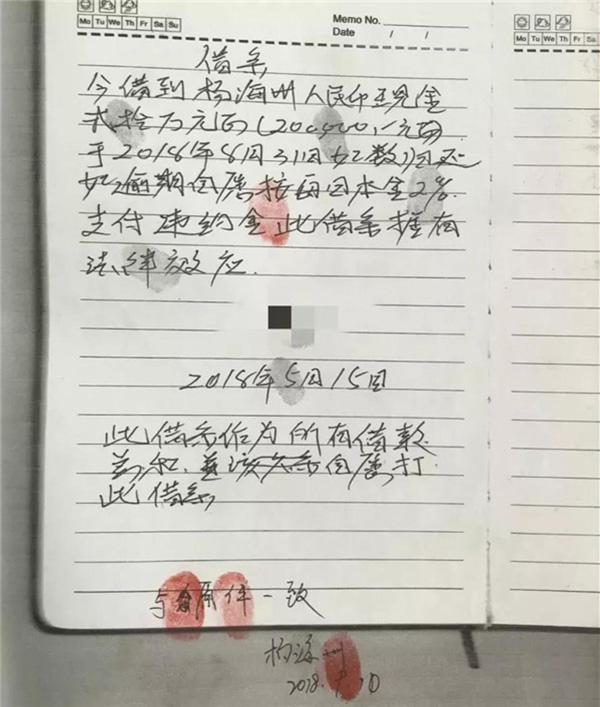 Memo No.
Mo Tu We Th Fr Sa Su
Date / /
Mo Tu We Th Fr
借条
今借到杨海州人民币现金
贰拾万元正(200000.一元正
于2018年8月31日如数归还
如逾期自愿按每日本金2%
支付违约金此借条拥有
法律效应.
2018年5月15日
此借条作为所有借款
总和.
自愿打
此借条
与原件一致
杨海州
2018.9.10